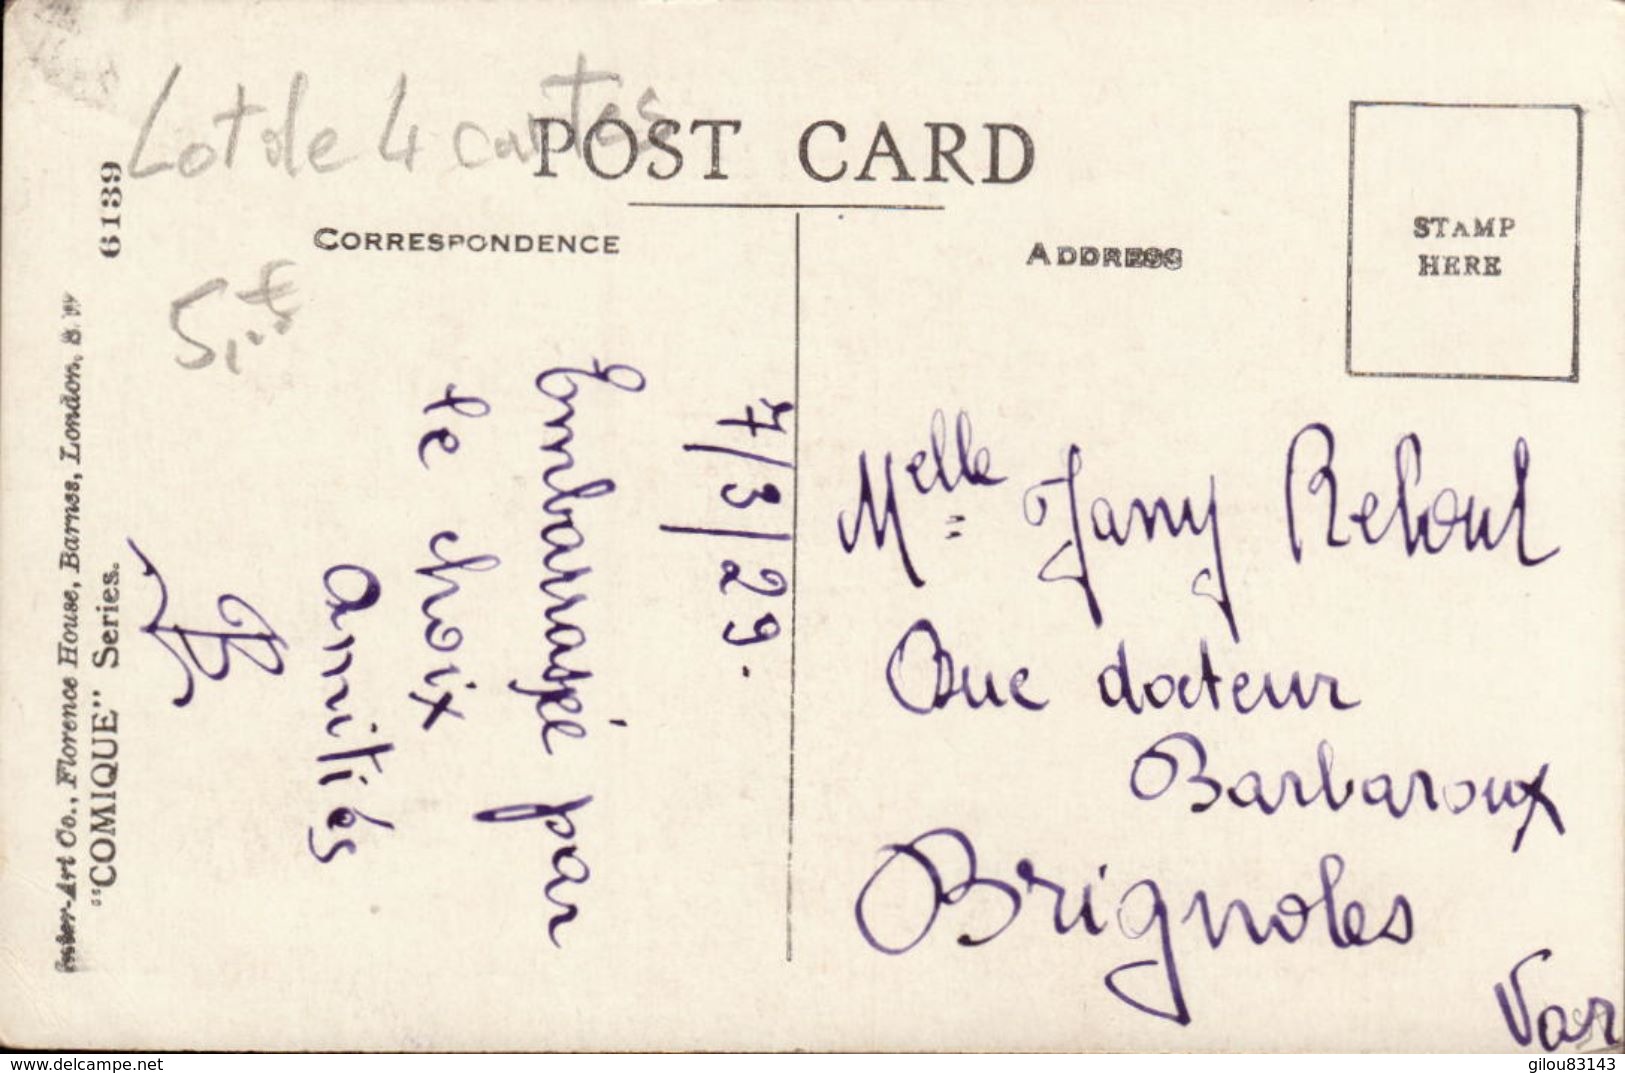 Lot de 4 cartes
POST CARD
CORRESPONDENCE
ADDRESS
STAMP
HERE
6139
5,-€
Inter-Art Co., Florence House, Barnes, London. S.W
"COMIQUE" Series.
7/3/29.
Embarrassée par
le choix
Amitiés
Melle Jany Reboul
Rue docteur
Barbaroux
Brignoles
Var
delcampe.net
gilou83143